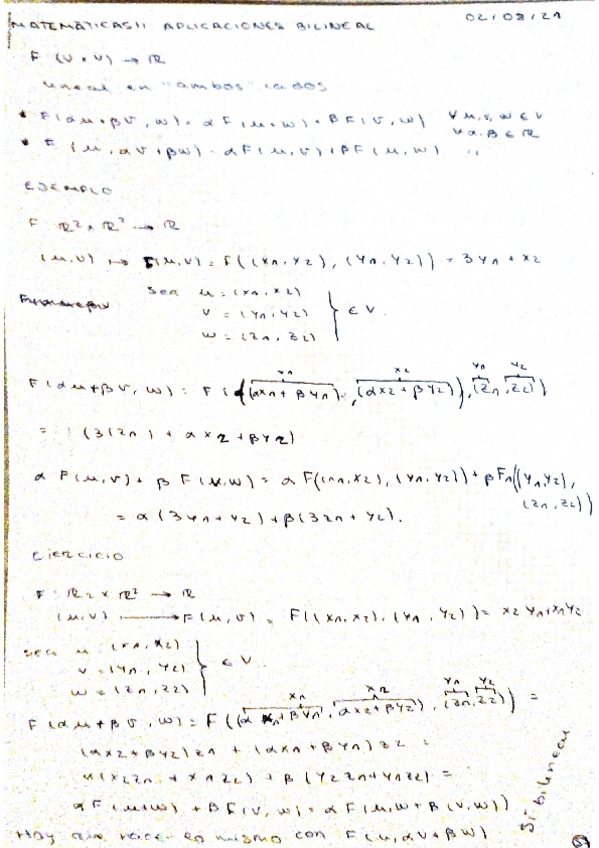 MATEMÁTICAS II APLICACIONES BILINEAL 02/08/21
F (V × V) → ℝ
lineal en "ambos" lados
* F(αu+βv, w) = αF(u,w) + βF(v,w) ∀u,v,w ∈ V
∀α,β ∈ ℝ
* F (u, αv+βw) = αF(u,v) + βF(u,w) ,,
EJEMPLO
F: ℝ² × ℝ² → ℝ
(u,v) → F(u,v) = F((x1,x2), (y1,y2)) = 3y1 + x2
Sea u = (x1,x2)
v = (y1,y2)
w = (z1,z2)
} ∈ V.
x1 x2 y1 y2
F(αu+βv, w) = F((αx1+βy1), (αx2+βy2)), (z1, z2))
= (3(z1) + αx2 + βy2)
αF(u,v) + βF(u,w) = αF((x1,x2), (y1,y2)) + βF((y1,y2),
(z1,z2))
= α(3y1+y2) + β(3z1+y2).
EJERCICIO
F: ℝ2 × ℝ² → ℝ
(u,v) → F(u,v) = F((x1,x2), (y1,y2)) = x2y1+x1y2
sea u = (x1,x2)
v = (y1,y2)
w = (z1,z2)
} ∈ V.
x1 x2 y1 y2
F(αu+βv, w) = F((αx1+βy1, αx2+βy2), (z1,z2)) =
(αx2+βy2)z1 + (αx1+βy1)z2 =
α(x2z1 + x1z2) + β(y2z1+y1z2) =
αF(u,w) + βF(v,w) = αF(u,w+β(v,w))
Sí bilineal
Hay que hacer lo mismo con F(u,αv+βw)